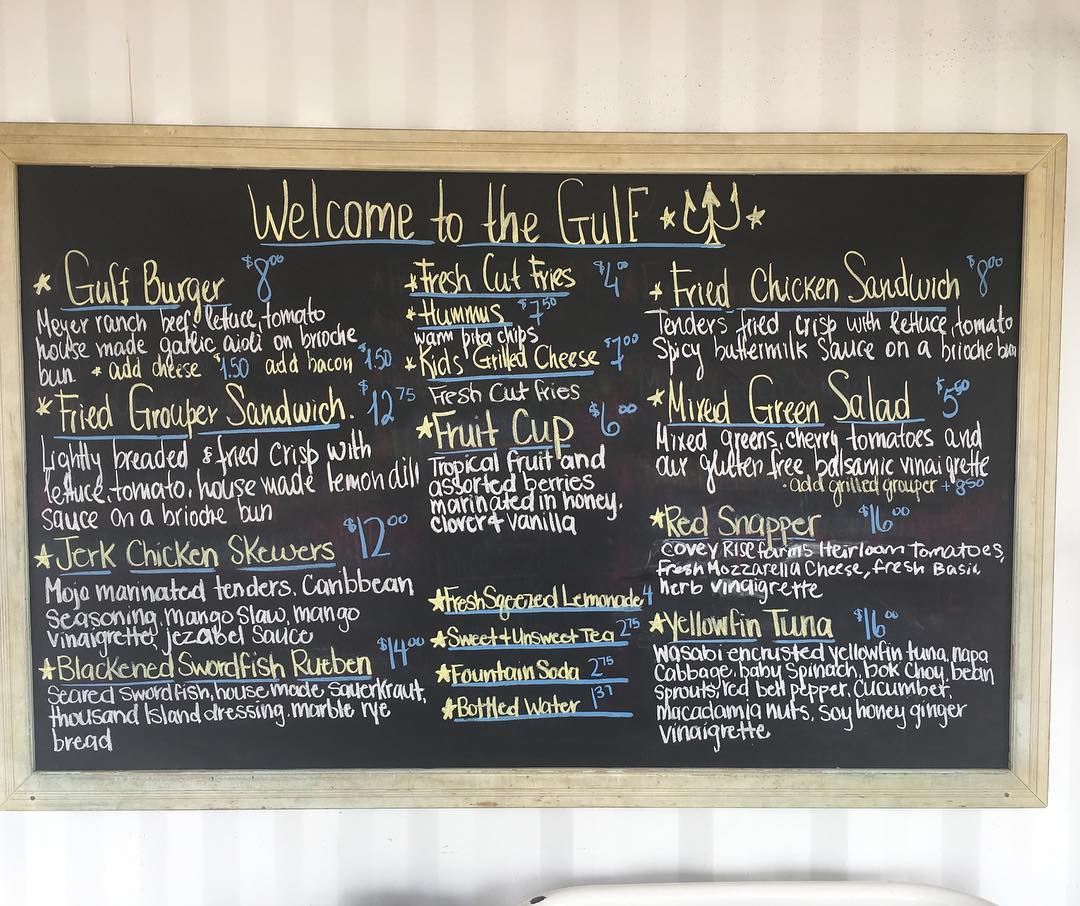 Welcome to the Gulf
Gulf Burger $8.00
Meyer ranch beef, lettuce, tomato
house made garlic aioli on brioche
bun * add cheese $1.50 add bacon $1.50
Fried Grouper Sandwich. $12.75
Lightly breaded & fried crisp with
lettuce, tomato, house made lemon dill
sauce on a brioche bun
Jerk Chicken Skewers $12.00
Mojo marinated tenders, Caribbean
seasoning, mango slaw, mango
vinaigrette, jezabel sauce
Blackened Swordfish Rueben $14.00
Seared swordfish, house made sauerkraut,
thousand Island dressing, marble rye
bread
Fresh Cut Fries $4.00
Hummus $7.50
warm pita chips
Kids Grilled Cheese $7.00
Fresh Cut Fries
Fruit Cup $6.00
Tropical fruit and
assorted berries
marinated in honey,
clover + vanilla
Fresh Sqeezed Lemonade 4
Sweet + Unsweet Tea 2.75
Fountain Soda 2.75
Bottled Water 1.37
Fried Chicken Sandwich $8.00
Tenders fried crisp with lettuce, tomato
Spicy buttermilk sauce on a brioche bun
Mixed Green Salad $5.50
Mixed greens, cherry tomatoes and
our gluten free balsamic vinaigrette
- add grilled grouper + 8.50
Red Snapper $16.00
Covey Rise farms Heirloom Tomatoes,
Fresh Mozzarella Cheese, fresh Basil
herb vinaigrette
Yellowfin Tuna $16.00
Wasabi encrusted yellowfin tuna, napa
Cabbage, baby spinach, bok choy, bean
sprouts, red bell pepper, cucumber,
Macadamia nuts, soy honey ginger
vinaigrette